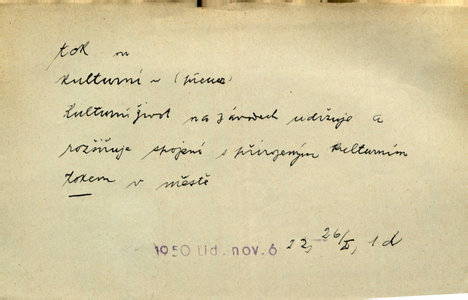 tok m
kulturní ~ (přenes)
Kulturní život na závodech udržuje a
rozšiřuje spojení s přirozeným kulturním
tokem v městě
1950 Lid. nov. 6 22, 26/II, 1 d